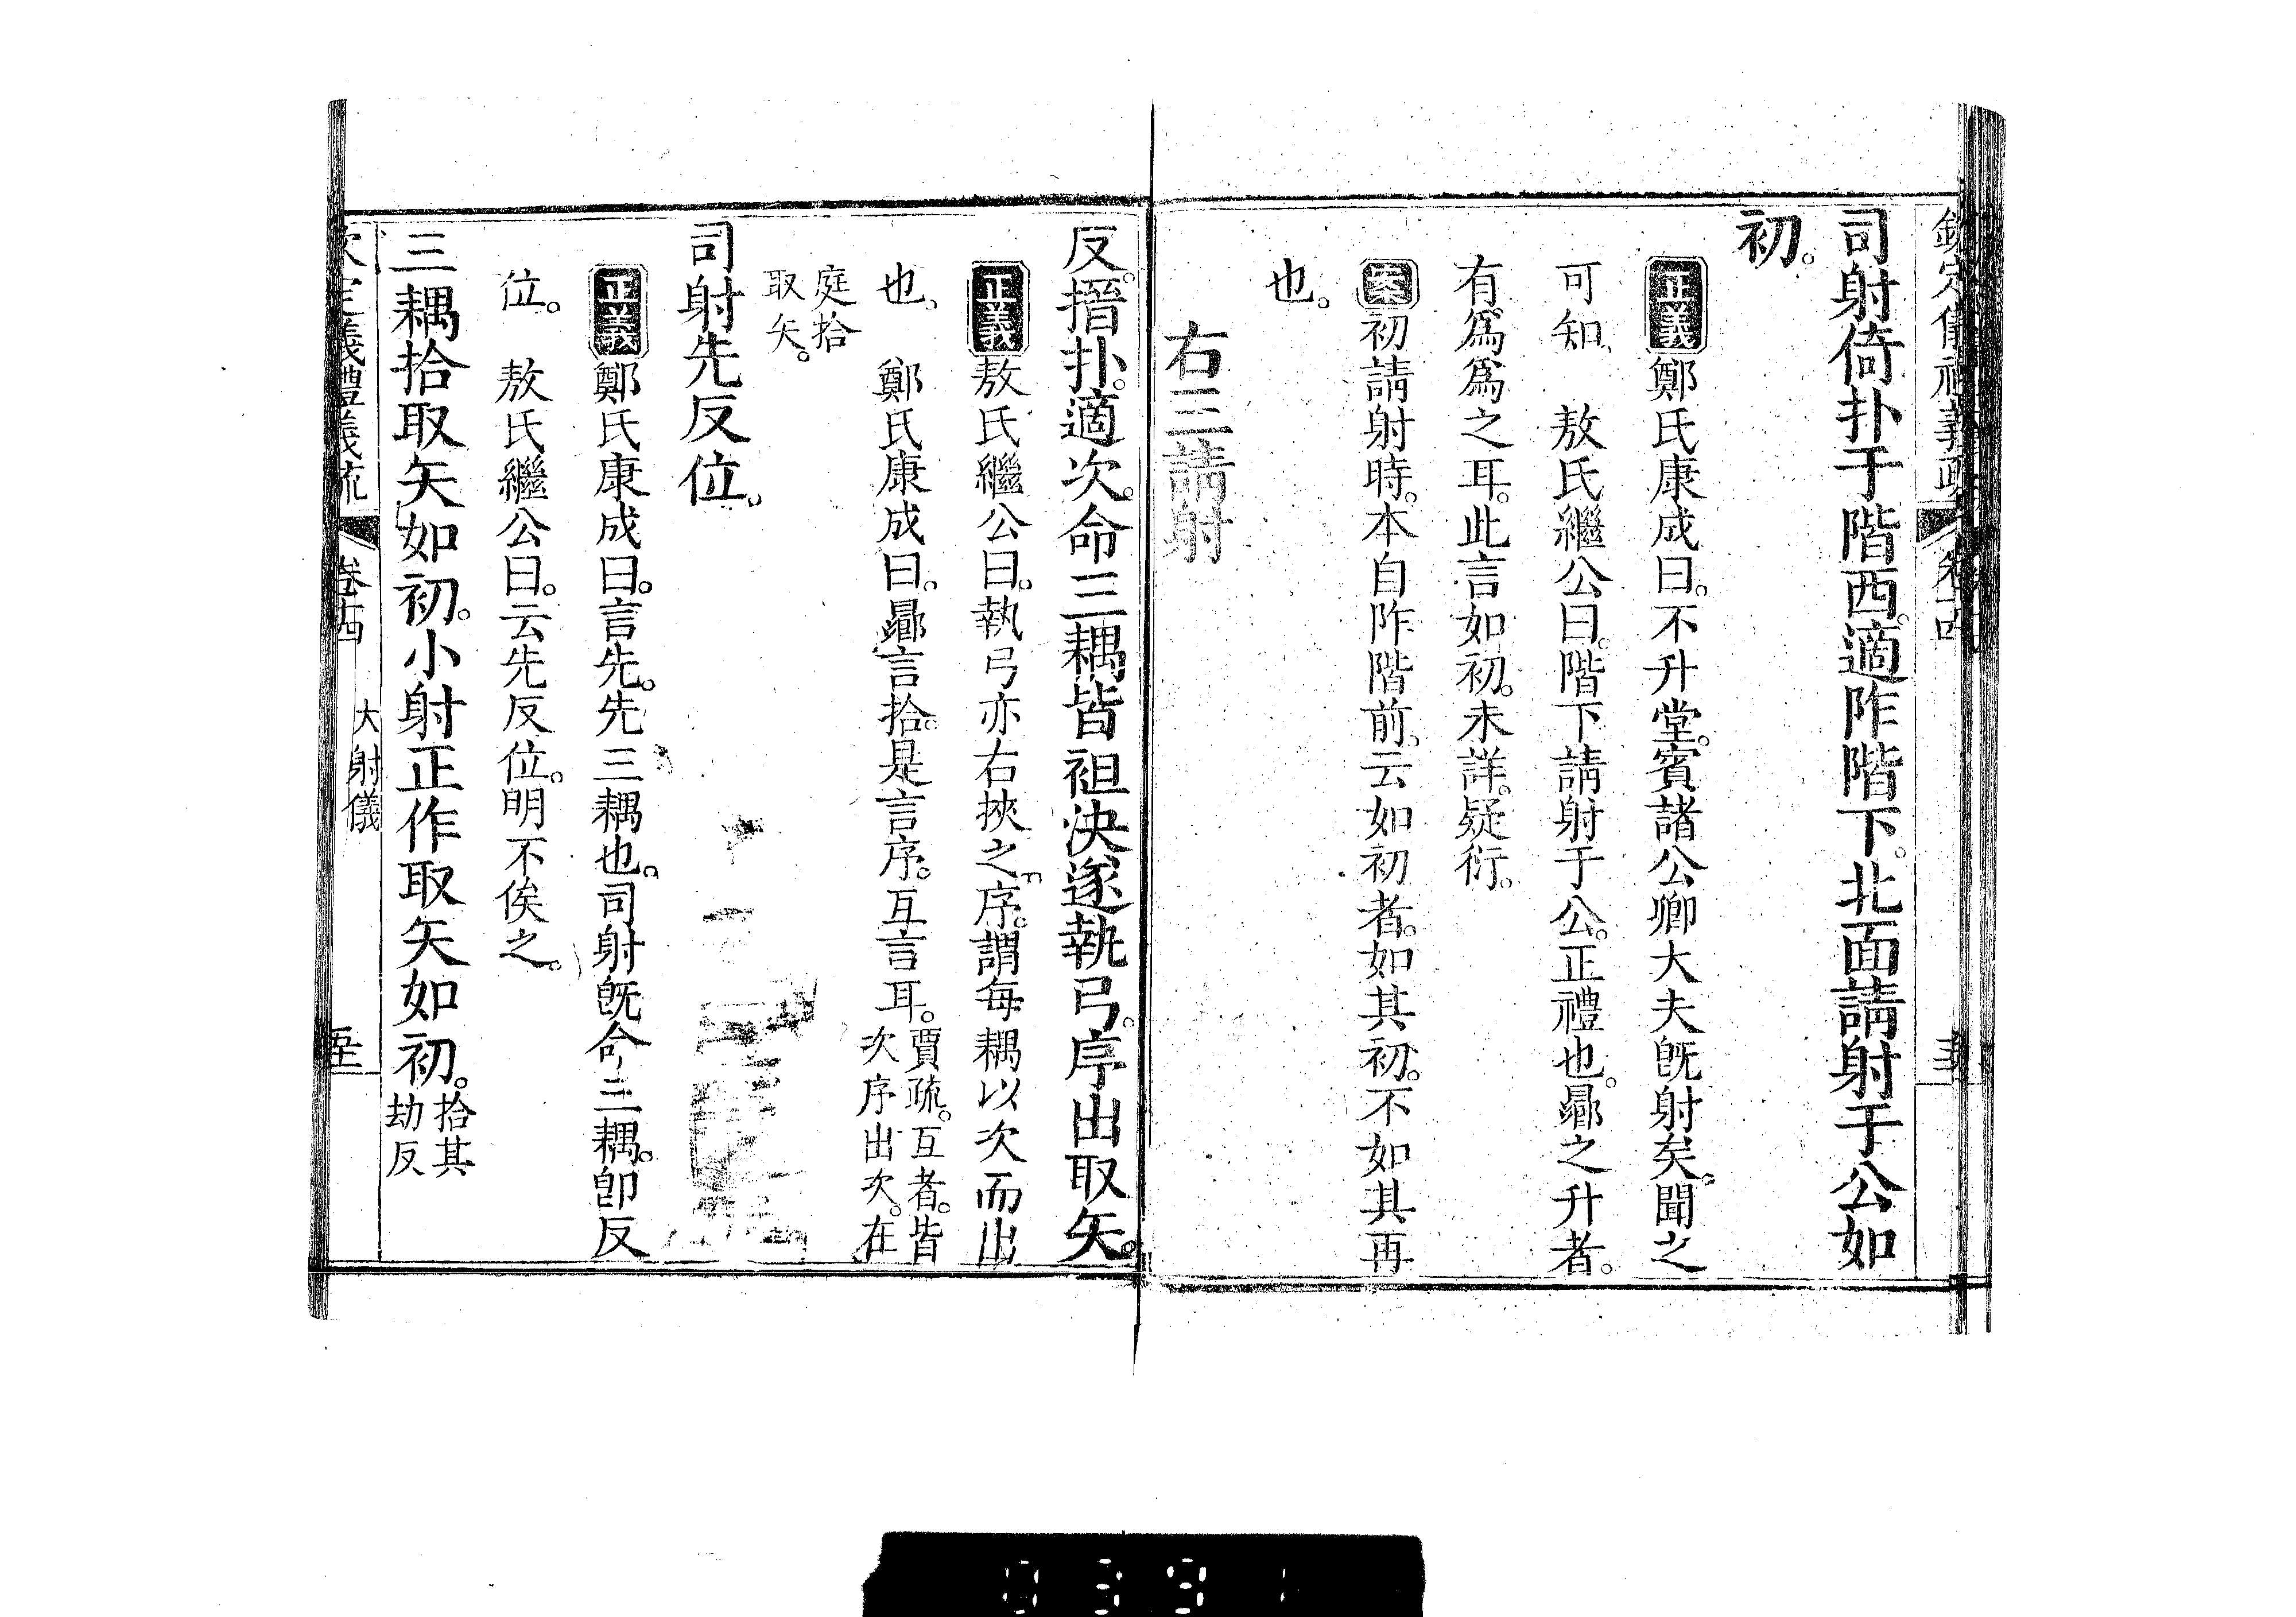 司射倚扑于階西。適阼階下。北面請射于公如
初。
正義鄭氏康成曰。不升堂。賓諸公卿大夫旣射矣。聞之
可知、　敖氏繼公曰。階下請射于公。正禮也。曏之升者。
有爲爲之耳。此言如初。未詳。疑衍。
案初請射時。本自阼階前。云如初者。如其初。不如其再
也。
右三請射
反。搢扑。適次。命三耦皆袒決遂執弓。序出取矢。
正義敖氏繼公曰。執弓亦右挾之。序。謂每耦以次而出
也、　鄭氏康成曰。曏言拾。是言序。互言耳。賈疏。互者。皆
次序出次。在
庭拾
取矢。
司射先反位。
正義鄭氏康成曰。言先。先三耦也。司射旣命三耦。卽反
位。　敖氏繼公曰。云先反位。明不俟之。
三耦拾取矢如初。小射正作取矢如初。拾其
劫反
卷十四
大射儀